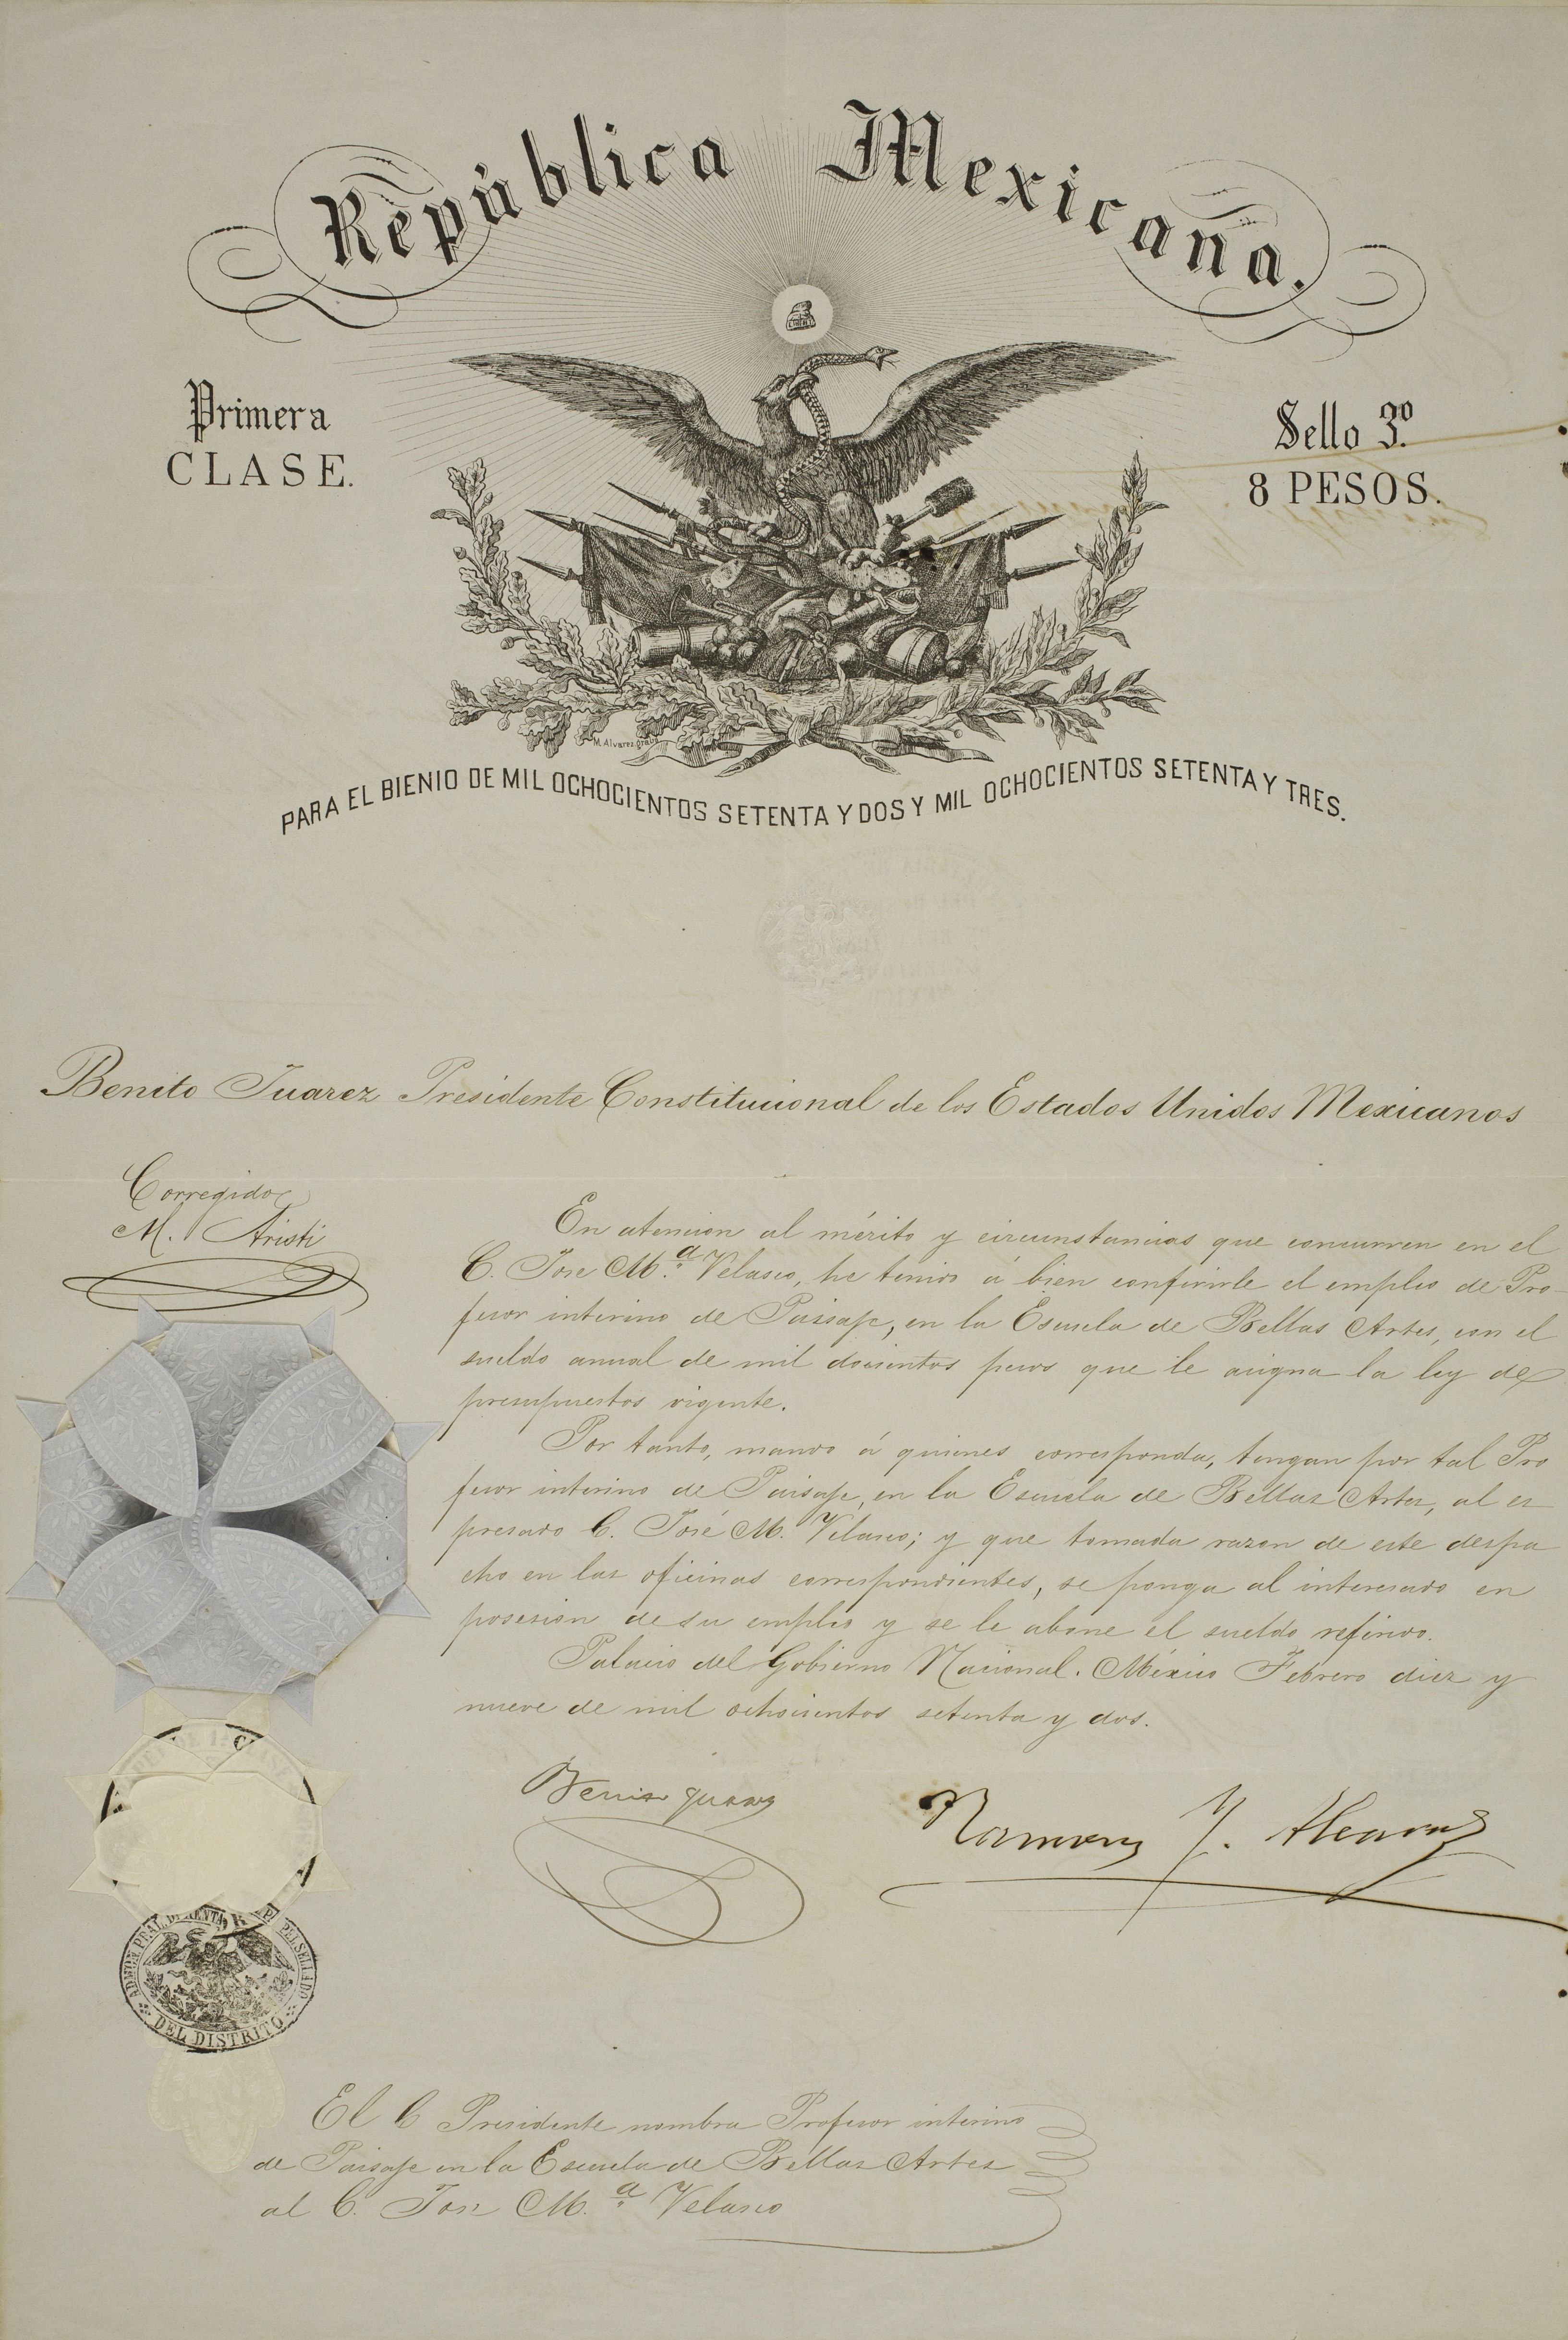 República Mexicana.
Primera
CLASE.
Sello 3º
8 PESOS.
M. Alvarez grabó
PARA EL BIENIO DE MIL OCHOCIENTOS SETENTA Y DOS Y MIL OCHOCIENTOS SETENTA Y TRES.
Benito Juarez Presidente Constitucional de los Estados Unidos Mexicanos
Corregido
M. Aristi
En atencion al mérito y circunstancias que concurren en el
C. Jose M.ª Velasco, he tenido á bien conferirle el empleo de Pro-
fesor interino de Paisaje, en la Escuela de Bellas Artes, con el
sueldo anual de mil docientos pesos que le asigna la ley de
presupuestos vigente.
Por tanto, mando á quienes corresponda, tengan por tal Pro
fesor interino de Paisaje, en la Escuela de Bellas Artes, al es
presado C. José M. Velasco; y que tomada razon de este despa
cho en las oficinas correspondientes, se ponga al interesado en
posesion de su empleo y se le abone el sueldo referido.
Palacio del Gobierno Nacional. México Febrero diez y
nueve de mil ochocientos setenta y dos.
Benito Juarez
Ramon I. Alcaraz
DEL DISTRITO
El C Presidente nombra Profesor interino
de Paisaje en la Escuela de Bellas Artes
al C. Jose M.ª Velasco